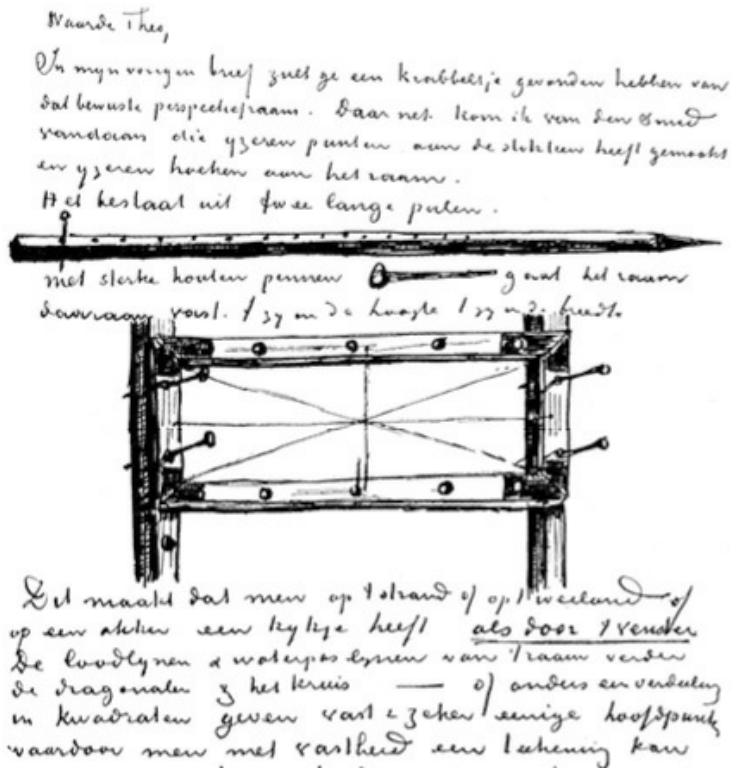 Waarde Theo,
In mijn vorigen brief zult ge een krabbeltje gevonden hebben van
dat bewuste perspectiefraam. Daar net kom ik van den smid
vandaan die yzeren punten aan de stokken heeft gemaakt
en yzeren hoeken aan het raam.
Het bestaat uit twee lange palen.
met sterke houten pennen gaat het raam
daaraan vast. 't zy in de hoogte 't zy in de breedte
Dit maakt dat men op 't strand of op 't weiland of
op een akker een kykje heeft als door 't venster
De loodlynen & waterpaslynen van 't raam verder
de diagonalen & het kruis — of anders een verdeeling
in kwadraten geven vast & zeker eenige hoofdpunten
waardoor men met vastheid een teekening kan